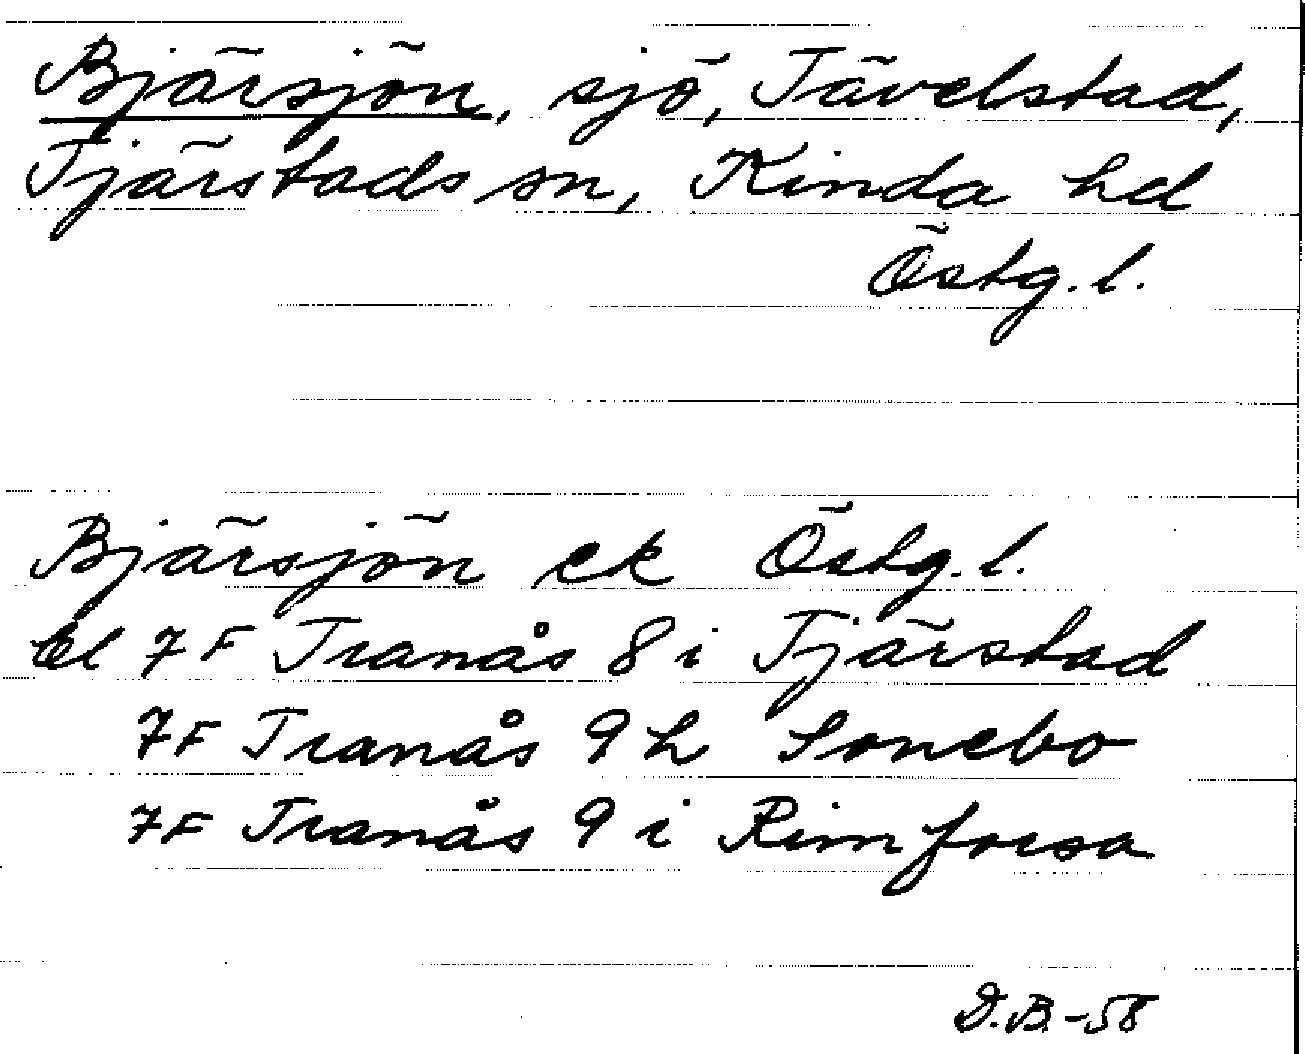 Bjärsjön, sjö, Tävelstad,
Tjärstads sn, Kinda hd
Östg. l.
Bjärsjön ek Östg. l.
bl 7F Tranås 8 i Tjärstad
7F Tranås 9 h Sonebo
7F Tranås 9 i Rimforsa
D.B.-58